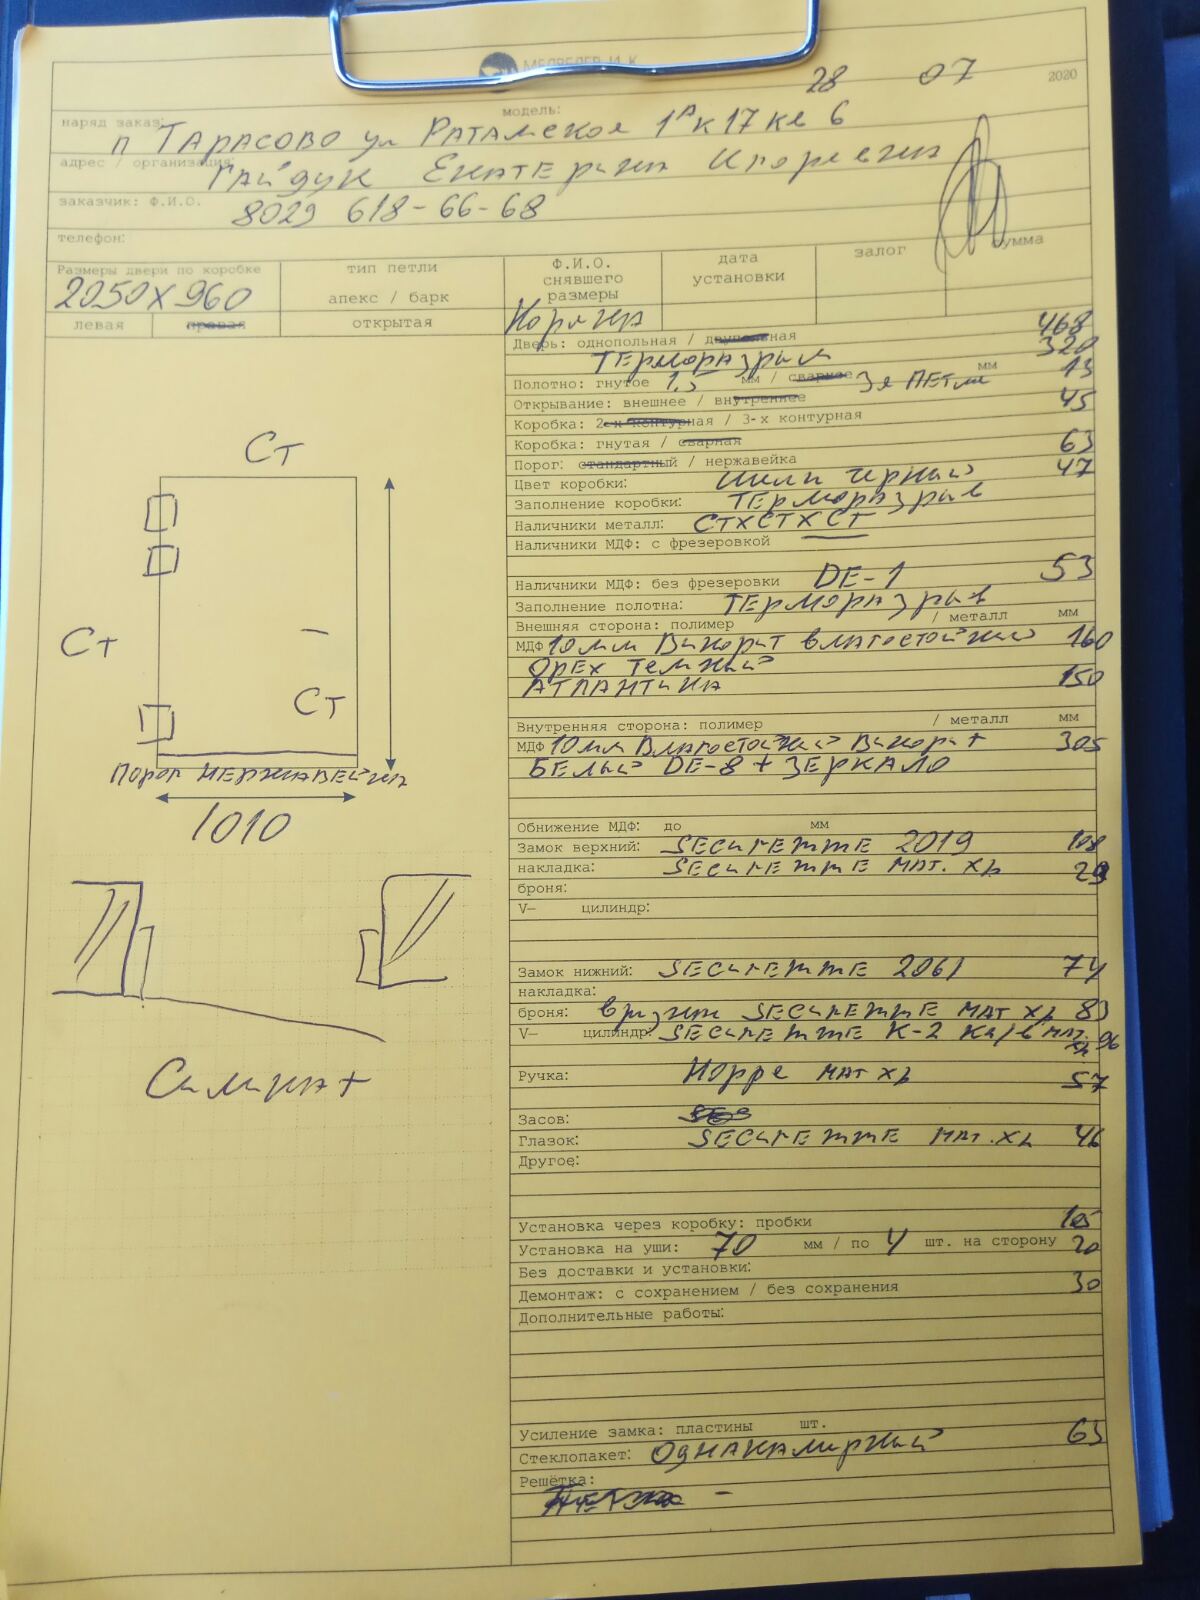 МЕДВЕДЕВ И.К.
28 07 2020
наряд заказ: модель:
п ТАРАСОВО ул РАТОМСКАЯ 1А к 17 кв 6
адрес / организация:
ГАЙДУК ЕКАТЕРИНА Игоревна
заказчик: Ф.И.О.
8029 618-66-68
телефон:
Размеры двери по коробке
2050 X 960
левая правая
тип петли
апекс / барк
открытая
Ф.И.О. снявшего размеры
дата установки
залог
сумма
Дверь: однопольная / двупольная 468
ТЕРМОРАЗРЫВ 320
Полотно: гнутое 1.5 мм / сварное 3я ПЕТля мм 13
Открывание: внешнее / внутреннее
Коробка: 2-х контурная / 3-х контурная 45
Коробка: гнутая / сварная
Порог: стандартный / нержавейка 63
Цвет коробки: шелк черный 47
Заполнение коробки: ТЕРМОРАЗРЫВ
Наличники металл: СТХСТХСТ
Наличники МДФ: с фрезеровкой
Наличники МДФ: без фрезеровки DE-1 53
Заполнение полотна: ТЕРМОРАЗРЫВ
Внешняя сторона: полимер / металл мм
МДФ 10мм Винорит влагостойкий 160
ОРЕХ ТЕМНЫЙ
АТЛАНТИКА 150
Внутренняя сторона: полимер / металл мм
МДФ 10мм Влагостойкий Винорит 305
БЕЛЫЙ DE-8 + ЗЕРКАЛО
Обнижение МДФ: до мм
Замок верхний: SECUREMME 2019 108
накладка: SECUREMME МАТ. ХР 29
броня:
V- цилиндр:
Замок нижний: SECUREMME 2061 74
накладка:
броня: врезная SECUREMME МАТ ХР 83
V- цилиндр: SECUREMME К-2 Кл/в МАТ. ХР 96
Ручка: Hoppe МАТ ХР 57
Засов:
Глазок: SECUREMME МАТ. ХР 46
Другое:
Установка через коробку: пробки 105
Установка на уши: 70 мм / по 4 шт. на сторону 20
Без доставки и установки:
Демонтаж: с сохранением / без сохранения 30
Дополнительные работы:
Усиление замка: пластины шт.
Стеклопакет: ОДНАКАМЕРНЫЙ 63
Решётка:
Ст
Ст
Ст
ПОРОГ НЕРЖАВЕЙКА
1010
Силикат